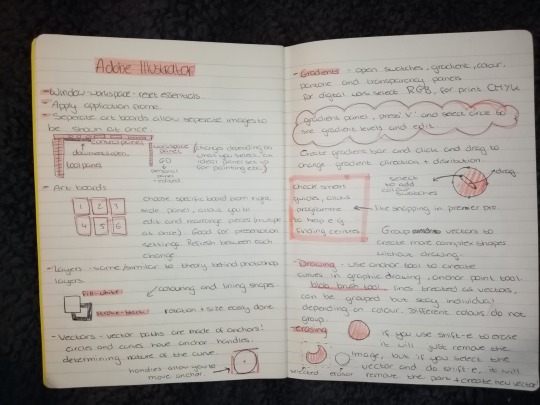 Adobe Illustrator
- Window workspace - reset essentials.
- Apply application frame.
- Seperate art boards allow seperate images to
be shown at once.
control panel
document window
tool panel
workspace
panel
GO
personal
panel
(change depending on
what you
panel set up
for painting etc.)
- Art boards
1 2 3
4 5 6
choose specific board from right
side panel, allows you to
edit and rearrange pieces (multiple
at once). Good for presentation
settings. Refresh between each
change.
- Layers - same/similar to theory behind photoshop
layers.
fill - white
stroke - black
colouring and lining shapes.
rotation + size easily done
- Vectors - vector paths are made of anchors!
Circles and curves have anchor handles,
determining nature of the curve.
handles allow you to
move anchor.
- Gradients - open swatches, gradient, colour,
pantone and transparency panels
for digital work select RGB, for print CMYK
gradient panel, press 'V' and select circle to
see gradient levels and edit.
Create gradient bar and click and drag to
change gradient direction + distribution.
select
to add
colour
swatches
drag
check smart
guides, allows
programme
to help e.g.
finding centres
like snapping in premier pro.
Group vectors to
create more complex shapes
without drawing.
- Drawing - use anchor tool to create
curves in graphic drawing, anchor point tool.
blob brush tool lines created as vectors,
can be grouped but stay individual
depending on colour. Different colours do not
group.
- erasing
if you use shift-e to erase
it will just remove the
image, but if you select the
vector and do shift-e, it will
eraser remove the part + create new vector